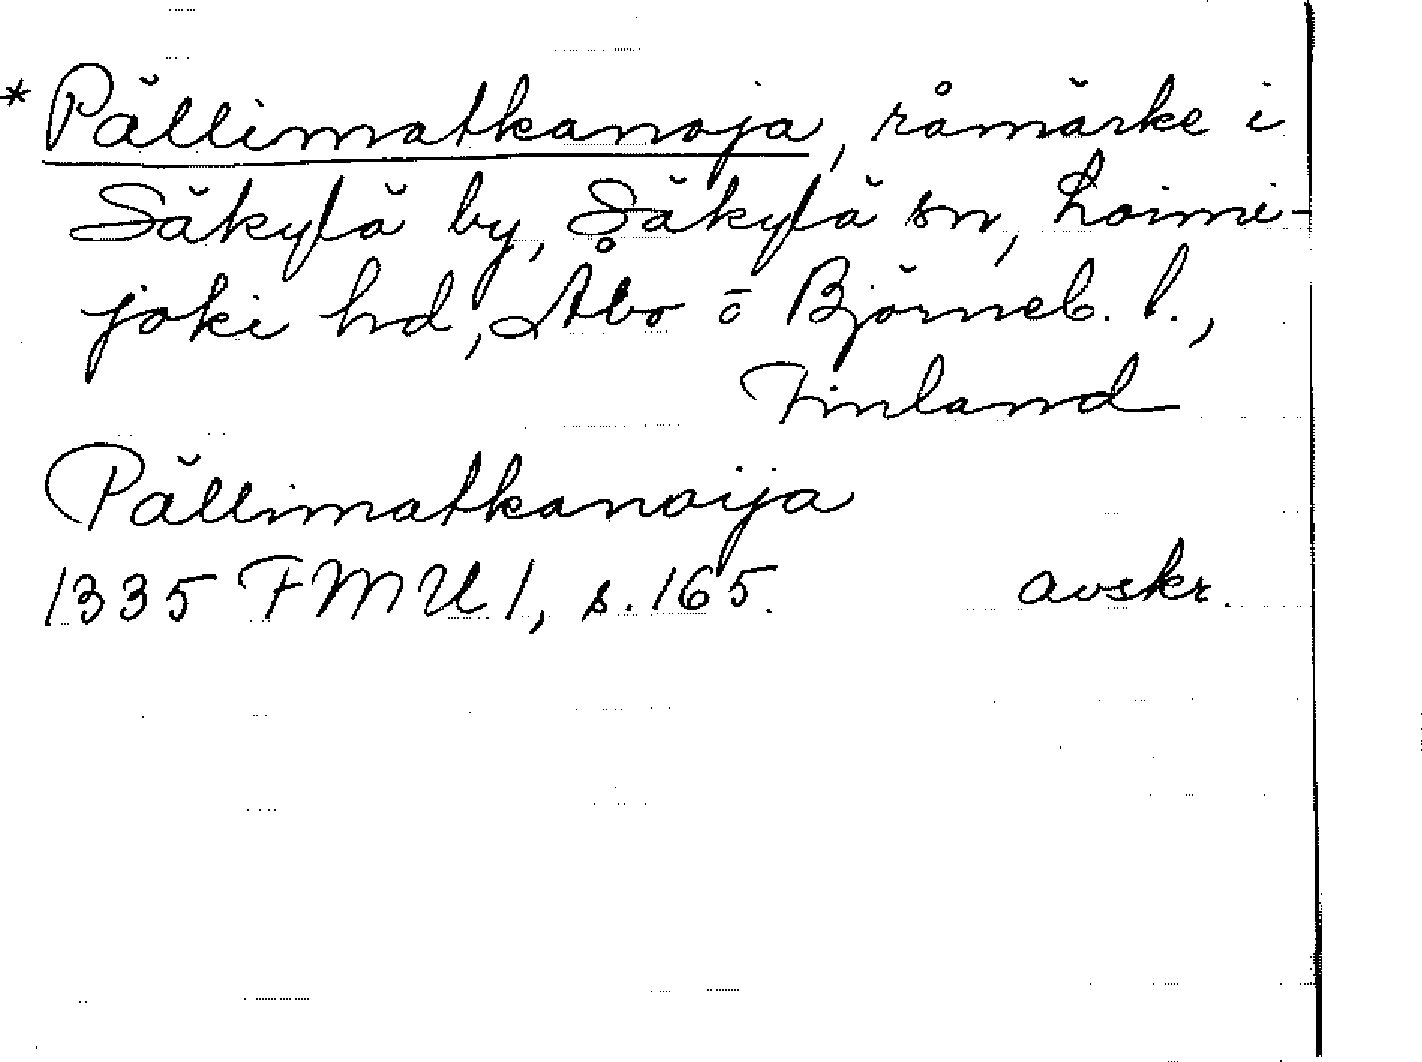 * Pällimatkanoja, råmärke i
Säkylä by, Säkylä sn, Loimi-
joki hd, Åbo o Björneb. l.,
Finland
Pällimatkanoija
1335 FMU 1, s. 165. avskr.